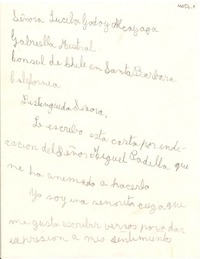 Señora Lucila Godoy Alcayaga
Gabriela Mistral
Consul de Chile en Santa Barbara
California
Distinguida Señora,
Le escribo esta carta por inde-
cacion del Señor Miguel Padilla que
me ha animado a hacerlo
Yo soy una señorita ciega que
me gusta escribir versos para dar
expresion a mis sentimientos